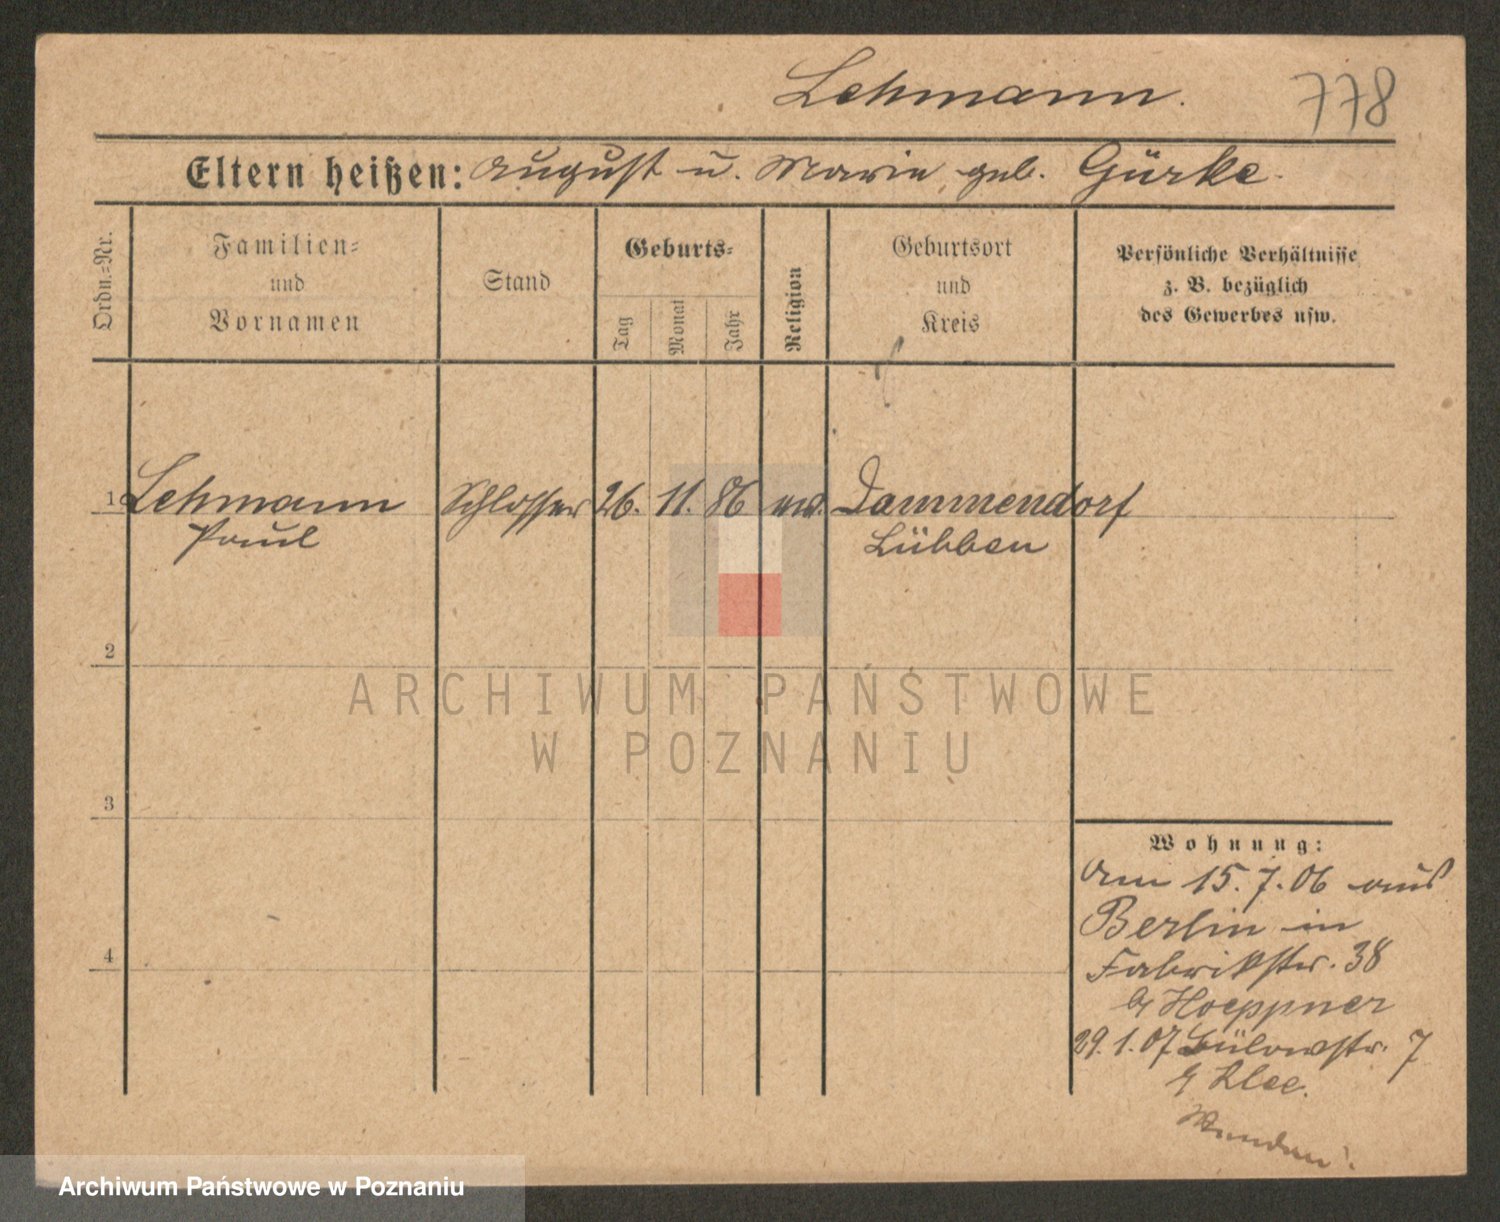 Lehmann.
778
Eltern heißen: August u. Marie geb. Gürke.
Ordn.=Nr.
Familien=
und
Vornamen
Stand
Geburts=
Tag
Monat
Jahr
Religion
Geburtsort
und
Kreis
Persönliche Verhältnisse
z. B. bezüglich
des Gewerbes usw.
1 Lehmann Schlosser 26. 11. 86 Dammendorf
Paul Lübben
2
ARCHIWUM PAŃSTWOWE
W POZNANIU
3
Wohnung:
Am 15. 7. 06 aus
Berlin in
4
Fabrikstr. 38
b/ Hoeppner
29. 1. 07 Bülowstr. 7
b/ Klee.
Archiwum Państwowe w Poznaniu